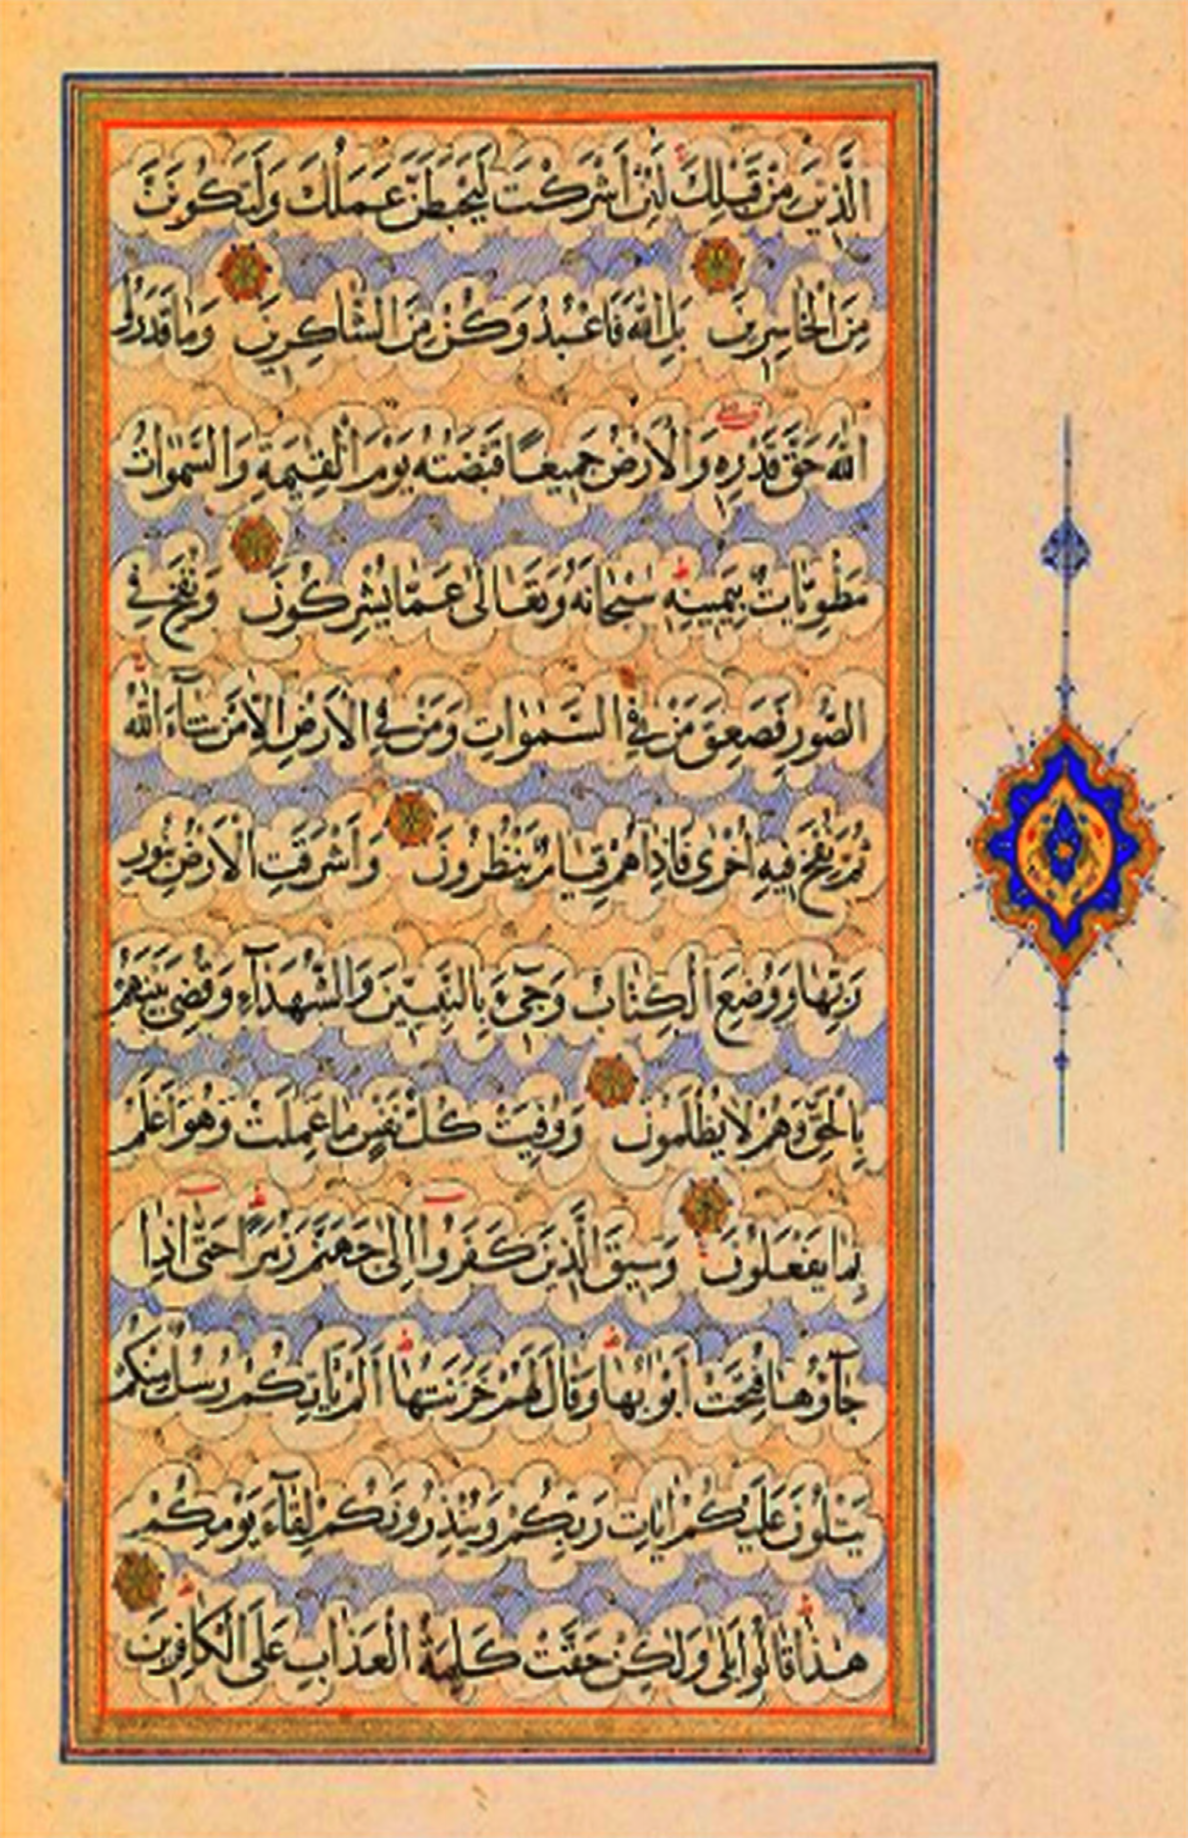 الَّذِينَ مِنْ قَبْلِكَ لَئِنْ أَشْرَكْتَ لَيَحْبَطَنَّ عَمَلُكَ وَلَتَكُونَنَّ
مِنَ الْخَاسِرِينَ بَلِ اللّٰهَ فَاعْبُدْ وَكُنْ مِنَ الشَّاكِرِينَ وَمَا قَدَرُوا
اللّٰهَ حَقَّ قَدْرِهِ وَالْاَرْضُ جَمِيعًا قَبْضَتُهُ يَوْمَ الْقِيٰمَةِ وَالسَّمٰوَاتُ
مَطْوِيَّاتٌ بِيَمِينِهِ سُبْحَانَهُ وَتَعَالٰى عَمَّا يُشْرِكُونَ وَنُفِخَ فِي
الصُّورِ فَصَعِقَ مَنْ فِي السَّمٰوَاتِ وَمَنْ فِي الْاَرْضِ اِلَّا مَنْ شَآءَ اللّٰهُ
ثُمَّ نُفِخَ فِيهِ اُخْرٰى فَاِذَا هُمْ قِيَامٌ يَنْظُرُونَ وَاَشْرَقَتِ الْاَرْضُ بِنُورِ
رَبِّهَا وَوُضِعَ الْكِتَابُ وَجِيٓءَ بِالنَّبِيّينَ وَالشُّهَدَآءِ وَقُضِيَ بَيْنَهُمْ
بِالْحَقِّ وَهُمْ لَا يُظْلَمُونَ وَوُفِّيَتْ كُلُّ نَفْسٍ مَا عَمِلَتْ وَهُوَ اَعْلَمُ
بِمَا يَفْعَلُونَ وَسِيقَ الَّذِينَ كَفَرُوا اِلٰى جَهَنَّمَ زُمَرًا حَتّٰى اِذَا
جَآؤُهَا فُتِحَتْ اَبْوَابُهَا وَقَالَ لَهُمْ خَزَنَتُهَا اَلَمْ يَاْتِكُمْ رُسُلٌ مِنْكُمْ
يَتْلُونَ عَلَيْكُمْ اٰيَاتِ رَبِّكُمْ وَيُنْذِرُونَكُمْ لِقَآءَ يَوْمِكُمْ
هٰذَا قَالُوا بَلٰى وَلٰكِنْ حَقَّتْ كَلِمَةُ الْعَذَابِ عَلَى الْكَافِرِينَ